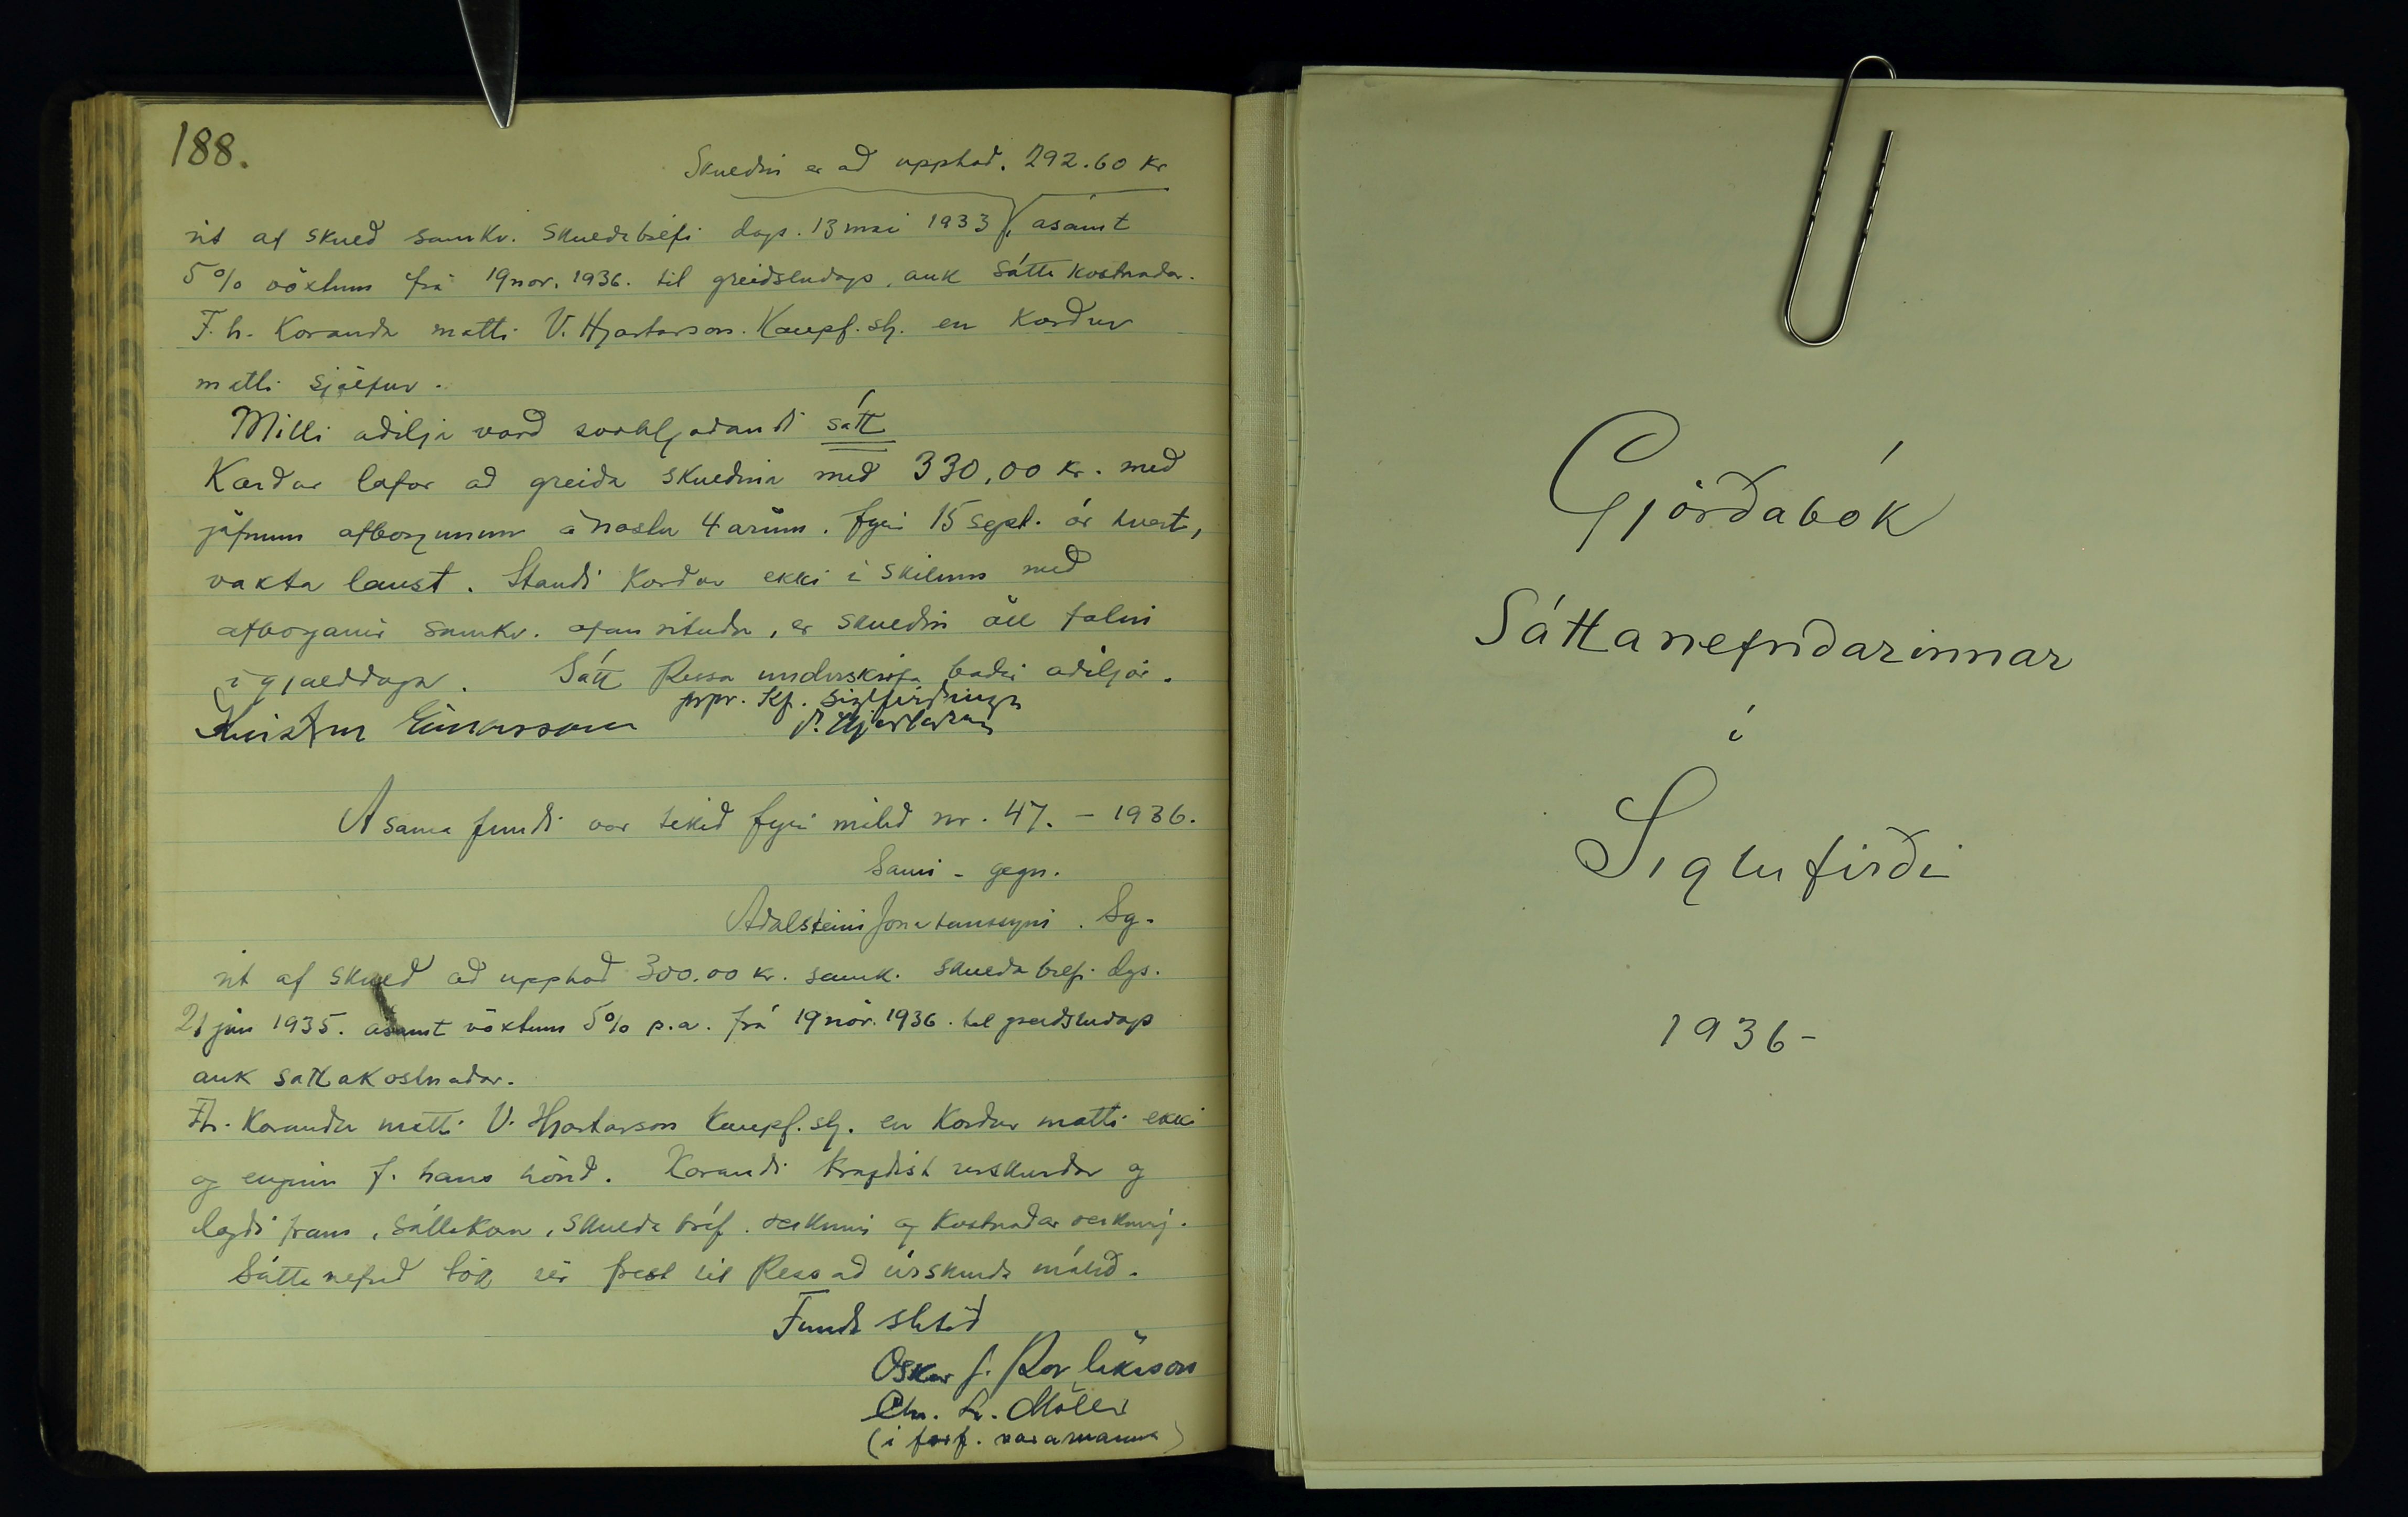 188.
Skuldin er að upphæð. 292.60 kr
út af skuld samkv. skuldabréfi dags. 13 mai 1933, ásamt
5% vöxtum frá 19 nov. 1936. til greiðsludags, auk sáttakostnaðar.
F. h. Kæranda mætti V. Hjartarson. Kaupf.stj. en Kærður
mætti sjálfur.
Milli aðilja varð svohljóðandi sátt
Kærður lofar að greiða skuldina með 330,00 kr. með
jöfnum afborgunum á næstu 4 árum. fyrir 15 sept. ár hvert,
vaxta laust. Standi Kærður ekki í skilum með
afborganir samkv. ofan rituðu, er skuldin öll fallin
í gjalddaga. Sátt þessa undirskrifa báðir aðiljar.
Kristinn Einarsson
prpr. Kf. Siglfirðinga
V. Hjartarson
A sama fundi var tekið fyrir málið nr. 47. - 1936.
Sami - gegn.
Aðalsteini Jónatanssyni. Sg.
út af skuld að upphæð 300.00 kr. samk. skuldabréfi dgs.
21 jún 1935. ásamt vöxtum 5% p.a. frá 19 nóv. 1936. til greiðsludags
auk sáttakostnaðar.
Fh. Kæranda mætti V. Hjartarson Kaupf.stj. en Kærður mætti ekki
og enginn f. hans hönd. Kærandi krafðist úrskurðar og
lagði fram, sáttakæru, skuldabréf. reikning og kostnaðar reikning.
Sáttanefnd tók sér frest til þess að úrskurða málið.
Fundi slitið
Oskar J. Þorláksson
Chr. L. Möller
(í forf. varamanna)
Gjörðabók
Sáttanefndarinnar
í
Siglufirði
1936-